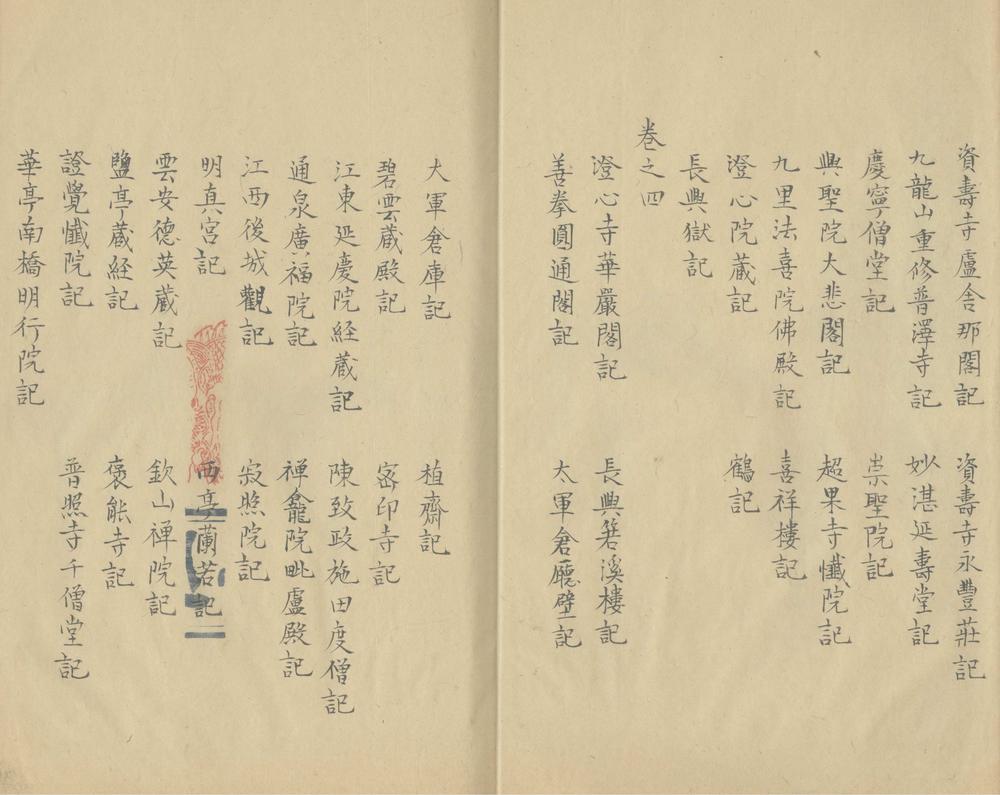 資壽寺盧舎那閣記　資壽寺永豐莊記
九龍山重修普澤寺記　妙湛延壽堂記
慶寧僧堂記　崇聖院記
興聖院大悲閣記　超果寺懺院記
九里法喜院佛殿記　喜祥樓記
澄心院蔵記　鶴記
長興獄記
卷之四
澄心寺華嚴閣記　長興箬溪樓記
善拳圓通閣記　太軍倉廳壁記
大軍倉庫記　植齋記
碧雲蔵殿記　宻印寺記
江東延慶院経蔵記　陳致政施田度僧記
通泉廣福院記　禅龕院毗盧殿記
江西後城觀記　寂照院記
明真宮記　西亭蘭若記
雲安德英蔵記　欽山禅院記
鹽亭蔵経記　褒能寺記
證覺懺院記　普照寺千僧堂記
華亭南橋明行院記